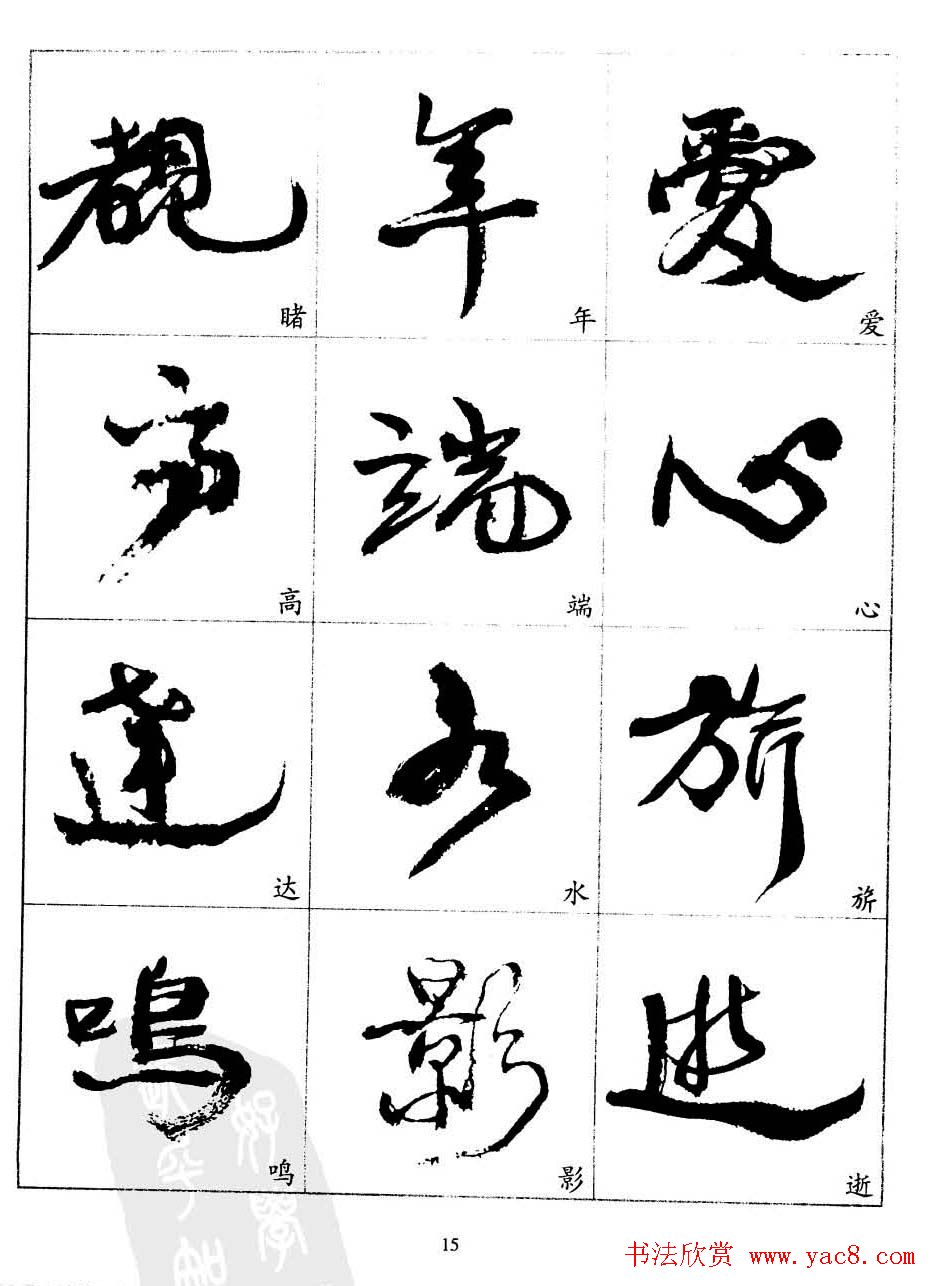 覩 年 愛
睹 年 爱
高 端 心
高 端 心
達 水 旂
达 水 旂
鳴 影 逝
鸣 影 逝
15
书法欣赏 www.yac8.com